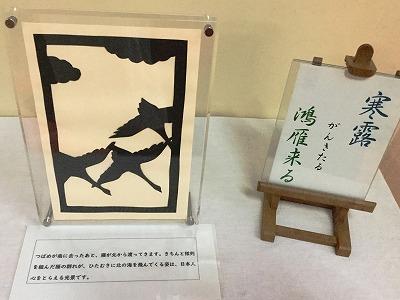 寒露
がんきたる
鴻雁来る
つばめが南に去ったあと、雁が北から渡ってきます。きちんと隊列
を組んだ雁の群れが、ひたむきに北の海を飛んでくる姿は、日本人の
心をとらえる光景です。